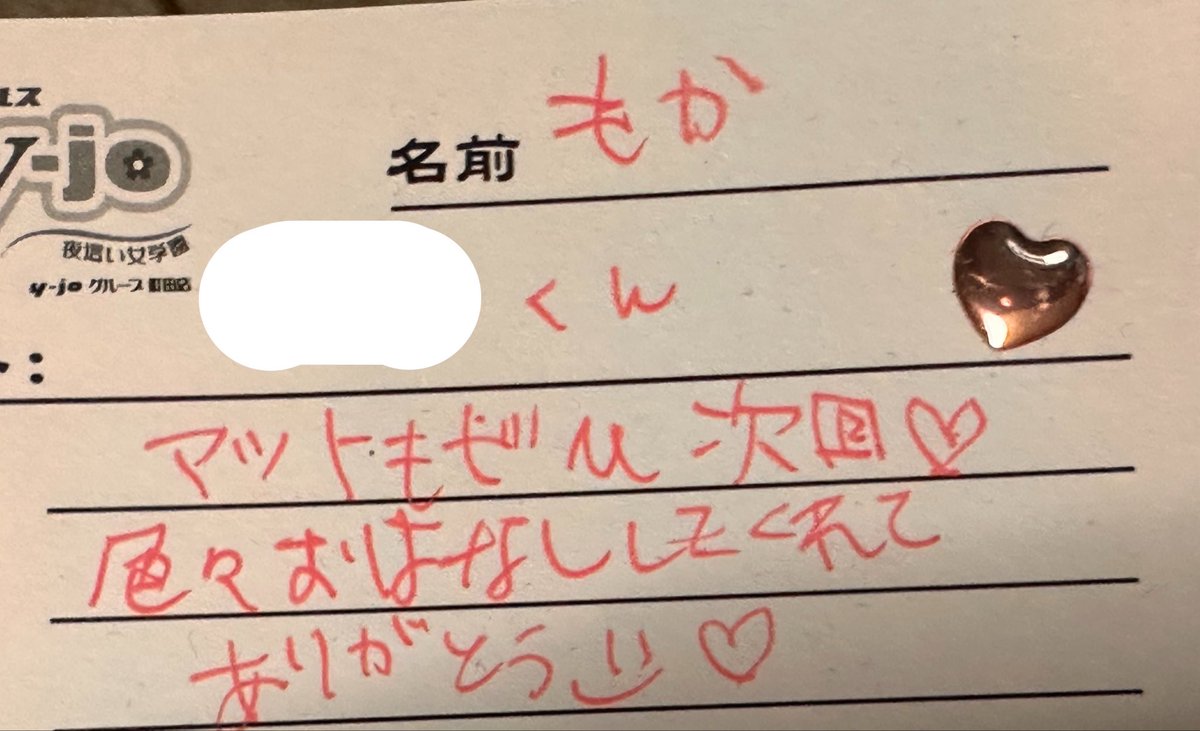 エス
y-jo
夜這い女学園
y-joグループ 町田店
名前 もか
くん
マットもぜひ次回♡
色々おはなししてくれて
ありがとう ♡